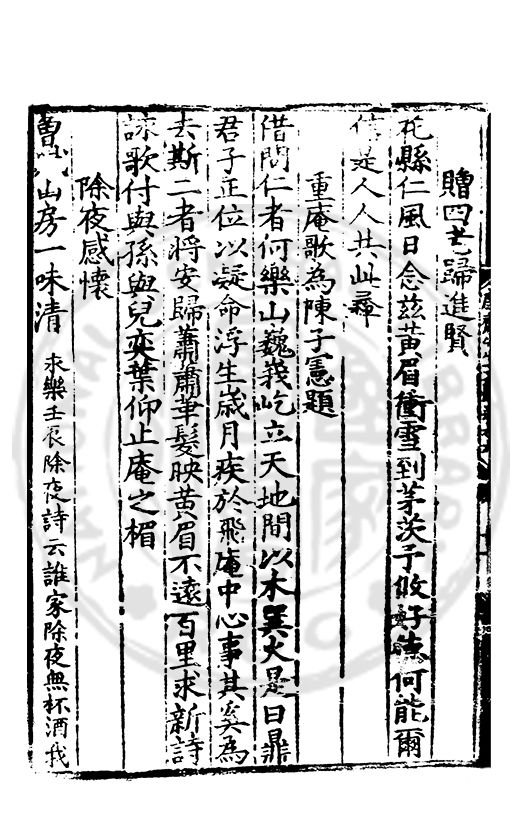 贈四老歸進賢
花縣仁風日念兹黄眉衝雪到茅茨予攸好德何能爾
信是人人共此彞
重庵歌為陳子憲題
借問仁者何樂山巍峩屹立天地間以木巽火是曰鼎
君子正位以凝命浮生歲月疾於飛庵中心事其奚為
去斯二者將安歸蕭蕭華髮映黄眉不遠百里求新詩
詠歌付與孫與兒奕葉仰止庵之楣
除夜感懷
山房一味清 永樂壬辰除夜詩云誰家除夜無杯酒我